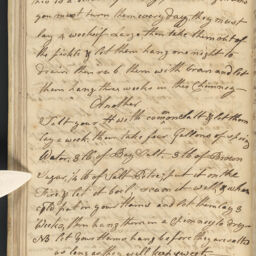 you must turn them every day, they must
lay 4 weeks if large then take them out of
the pickle & let them hang one night to
drain then rub them with bran and let
them hang three weeks in the Chimney
Another
Salt your Hams with common salt & let them
lay a week, then take four Gallons of spring
Water, 3 lb of Bay Salt, 3 lb of Brown
Sugar, ½ lb of Salt Petre, put it on the
Fire & let it boil, scum it well, & when
cold put in your Hams and let them lay 3
Weeks, then hang them in a Chimney to Dry
NB let your Hams hang before they are salted
as long as they will keep sweet